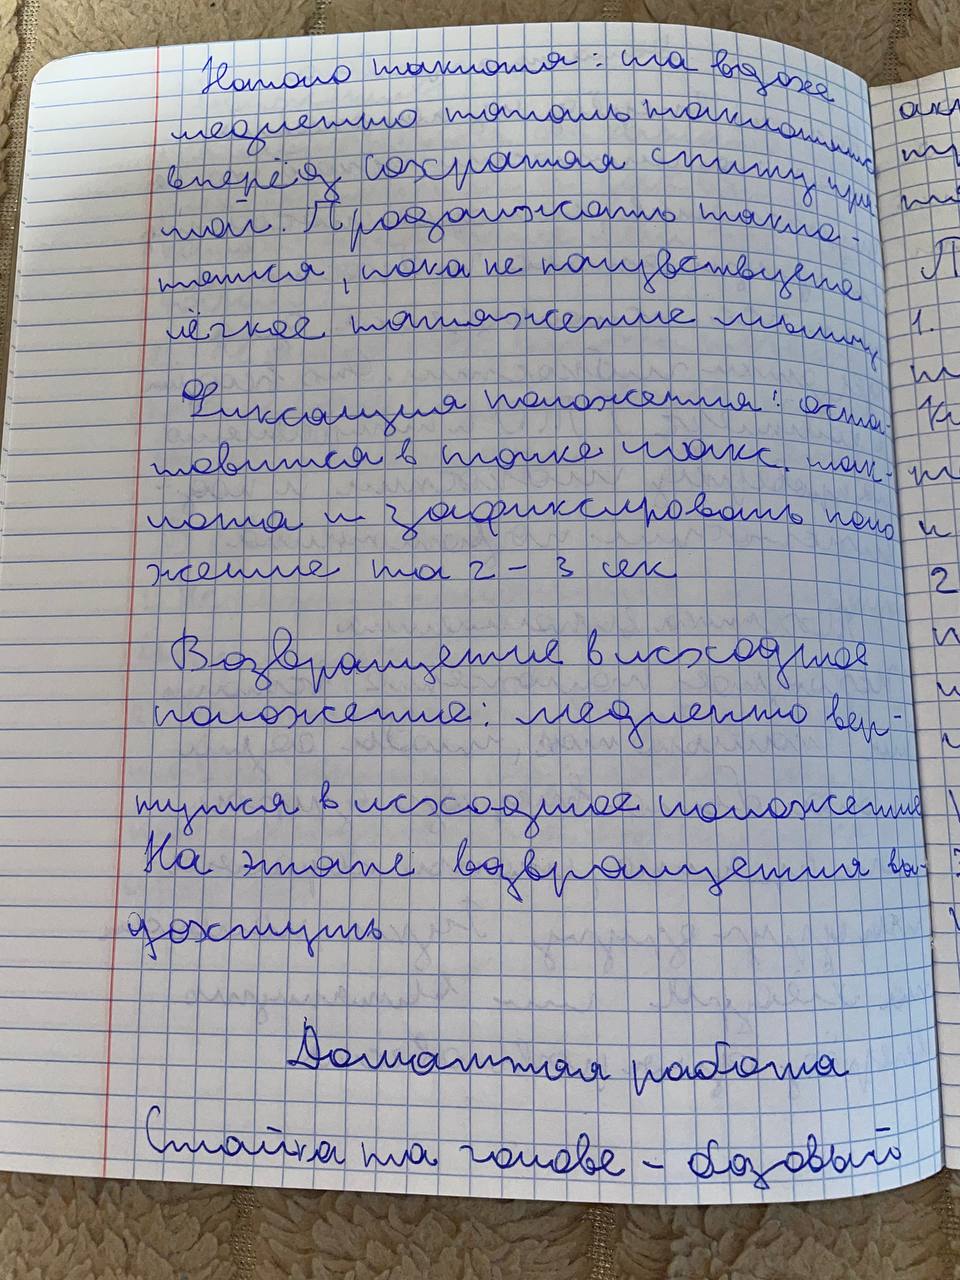 Начало наклона: на вдохе
медленно начать наклоняться
вперёд сохраняя спину пря
мой. Продолжать накло-
няться, пока не почувствуете
лёгкое натяжение мышц
Фиксация положения: оста-
новится в точке макс. нак-
лона и зафиксировать поло
жение на 2 - 3 сек
Возвращение в исходное
положение: медленно вер-
нутся в исходное положение
На этапе возвращения вы-
дохнуть
Домашняя работа
Стойка на голове - базовый
1.
2